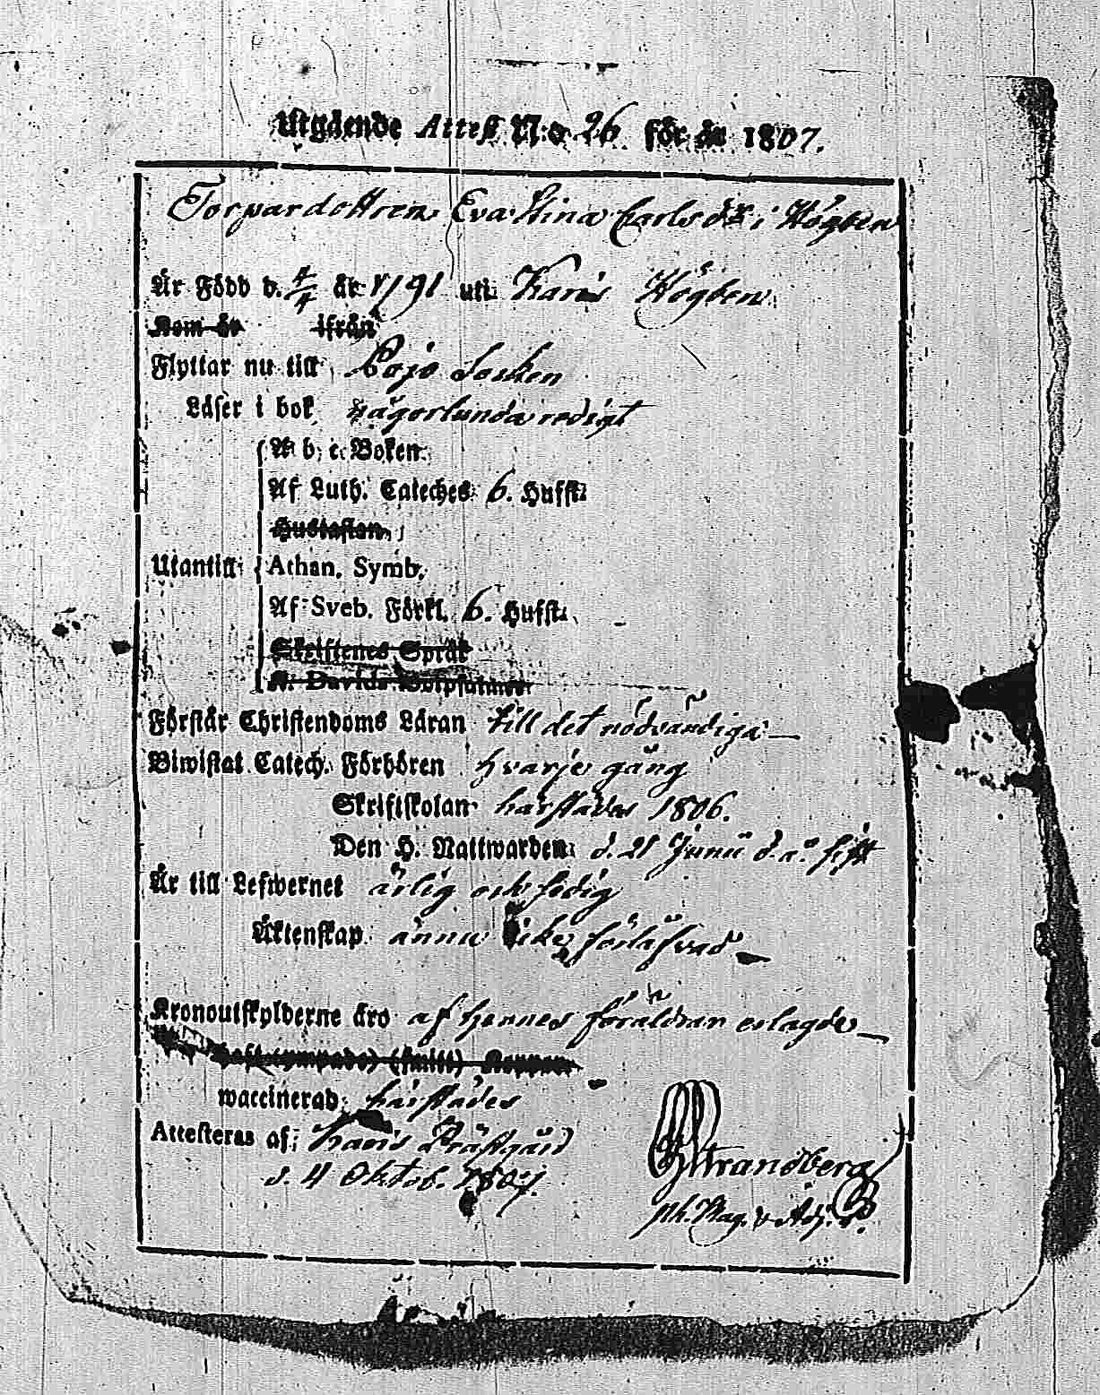 Utgående Attest N:o 26 för år 1807.
Torpardottren Eva Stina Carls dr i Högben
Är Född d. 4/4 år 1791 uti Karis Högben
Kom år ifrån
Flyttar nu till Pojo Socken
Läser i bok någorlunda redigt
A b c Boken
Af Luth. Cateches 6. Hufst.
Hustaflan
Utantill Athan. Symb.
Af Sveb. Förkl. 6. Hufst.
Skriftenes Språk
K. Davids Botpsalmer
Förstår Christendoms Läran till det nödvändiga
Biwistat Catech. Förhören hvarje gång
Skriftskolan härstädes 1806.
Den H. Nattwarden d. 21 Junii d. å. sist
Är till Lefwernet ärlig och sedig
Äktenskap ännu icke förlåfvad
Kronoutskylderne äro af hennes föräldrar erlagde
Haft (ympade) Koppor
waccinerad härstädes
Attesteras af: Karis Prästgård
d. 4 Oktob. 1807.
Strandberg
ph. Mag. v. Adj.